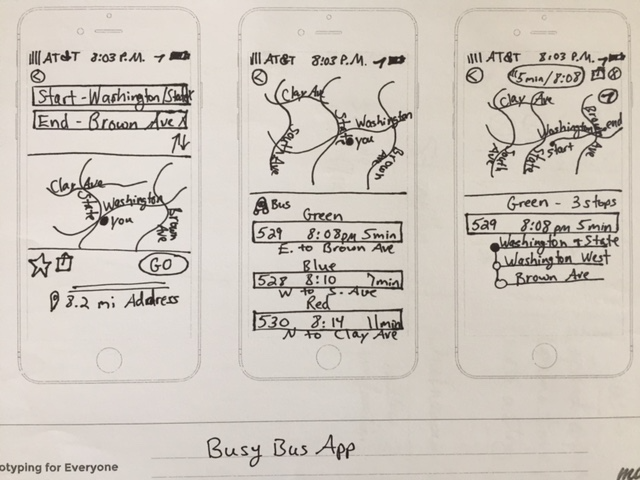 AT&T 8:03 P.M.
Start - Washington/State
End - Brown Ave
Clay Ave
State
Washington
you
Brown Ave
GO
8.2 mi Address
AT&T 8:03 P.M.
Clay Ave
South Ave
State
Washington
you
Brown Ave
Bus
Green
529 8:08pm 5min
E. to Brown Ave
Blue
528 8:10 7min
W to S. Ave
Red
530 8:14 11min
N to Clay Ave
AT&T 8:03 P.M.
5min/8:08
Clay Ave
South Ave
State
Washington
start
Brown Ave
end
Green - 3 stops
529 8:08pm 5min
Washington & State
Washington West
Brown Ave
Busy Bus App
otyping for Everyone